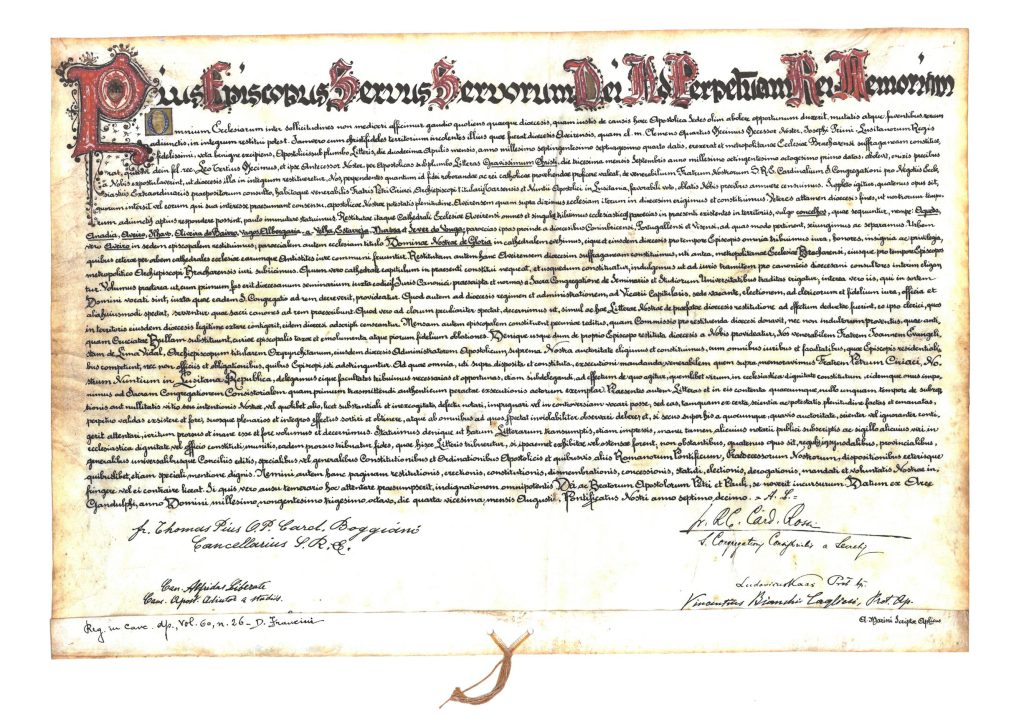 Pius Episcopus Servus Servorum Dei Ad Perpetuam Rei Memoriam
Omnium Ecclesiarum inter sollicitudines non mediocri afficimur gaudio quotiens quaeque dioecesis, quam iustis de causis haec Apostolica Sedes olim abolere opportunum duxerit, mutatis atque faventibus rerum
adiunctis, in integrum restitui potest. Iamvero cum christifideles territorium incolentes illius quae fuerat dioecesis Aveirensis, quam cl. m. Clemens Quartus Decimus Decessor Noster, Josephi Primi Lusitanorum Regis
fidelissimi, vota benigne excipiens, Apostolicis sub plumbo Litteris, die duodecima Aprilis mensis, anno millesimo septingentesimo septuagesimo quarto datis, erexerat et metropolitanae Ecclesiae Bracharensi suffraganeam constitue-
rat, quamque dein fel. rec. Leo Tertius Decimus, et ipse Antecessor Noster, per Apostolicas sub plumbo Litteras Gravissimum Christi, die tricesima mensis Septembris anno millesimo octingentesimo octogesimo primo datas, abolevit, enixis precibus
a Nobis expostulaverint, ut dioecesis illa in integrum restitueretur, Nos, perpendentes quantum id fidei roborandae ac rei catholicae provehendae proficere valeat, de venerabilium Fratrum Nostrorum S. R. E. Cardinalium S. Congregationi pro Negotiis Eccle-
siasticis Extraordinariis praepositorum consulto, habitoque venerabilis Fratris Petri Ciriaci, Archiepiscopi titularis Tarsensis et Nuntii Apostolici in Lusitania, favorabili voto, oblatis Nobis precibus annuere censuimus. Suppleto igitur, quatenus opus sit,
quorum intersit vel eorum qui sua interesse praesumant consensu, apostolicae Nostrae potestatis plenitudine Aveirensem quam supra diximus ecclesiam iterum in dioecesim erigimus et constituimus. Veteres attamen dioecesis fines, ut nostrorum tempo-
rum adiunctis aptius respondere possint, paulo immutare statuimus. Restitutae itaque Cathedrali Ecclesiae Aveirensi omnes et singulas tribuimus ecclesiasticas paroecias in praesenti existentes in territoriis, vulgo concelhos, quae sequuntur, nempe: Agueda,
Anadia, Aveiro, Ilhavo, Oliveira do Bairro, Vagos, Albergaria-a-Velha, Estarreja, Murtosa et Sever do Vouga; paroecias ipsas proinde a dioecesibus Conimbricensi, Portugallensi et Visensi, ad quas modo pertinent, seiungimus ac separamus. Urbem
vero Aveiro in sedem episcopalem restituimus, paroecialem autem ecclesiam titulo Dominae Nostrae de Gloria in cathedralem evehimus, eique et eiusdem dioecesis pro tempore Episcopis omnia tribuimus iura, honores, insignia ac privilegia,
quibus ceterae per orbem cathedrales ecclesiae earumque Antistites iure communi fruuntur. Restitutam autem hanc Aveirensem dioecesim suffraganeam constituimus, uti antea, metropolitanae Ecclesiae Bracharensi, eiusque pro tempore Episcopos
metropolitico Archiepiscopi Bracharensis iuri subiicimus. Quum vero cathedrale capitulum in praesenti constitui nequeat, et usquedum constituatur, indulgemus ut ad iuris tramitem pro canonicis dioecesani consultores interim eligan-
tur. Volumus praeterea ut, cum primum fas erit dioecesanum seminarium iuxta codicis Juris Canonici praescripta et normas a Sacra Congregatione de Seminariis et Studiorum Universitatibus traditas erigatur, interea vero iis, qui in sortem
Domini vocati sint, iuxta quae eadem S. Congregatio ad rem decreverit, provideatur. Quod autem ad dioecesis regimen et administrationem, ad Vicarii Capitularis, sede vacante, electionem, ad clericorum et fidelium iura, officia et
alia huiusmodi spectat, serventur quae sacri canones ad rem praescribunt. Quod vero ad clerum peculiariter spectat, decernimus ut, simul ac hae Litterae Nostrae de praefatae dioecesis restitutione ad effectum deductae fuerint, eo ipso clerici, qui
in territorio eiusdem dioecesis legitime extare contigerit, eidem dioecesi adscripti censeantur. Mensam autem episcopalem constituent perennes reditus, quam Commissio pro restituenda dioecesi donavit, nec non indultorum proventus, quae anti-
quam Cruciatae Bullam substituunt, curiae episcopalis taxae et emolumenta atque piorum fidelium oblationes. Denique usque dum de proprio Episcopo restituta dioecesis a Nobis provideatur, Nos venerabilem Fratrem Joannem Evangeli-
stam de Lima Vidal, Archiepiscopum titularem Oxyrynchitanum, eiusdem dioecesis Administratorem Apostolicum, suprema Nostra auctoritate eligimus et constituimus, cum omnibus iuribus et facultatibus, quae Episcopis residentiali-
bus competunt, nec non officiis et obligationibus, quibus Episcopi isti adstringuntur. Ad quae omnia, uti supra disposita et constituta, exsecutioni mandanda, venerabilem, quem supra memoravimus Fratrem Petrum Ciriaci, No-
strum Nuntium in Lusitana Republica, delegamus eique facultates tribuimus necessarias et opportunas, etiam subdelegandi, ad effectum de quo agitur, quemlibet virum, in ecclesiastica dignitate constitutum, eidemque onus impo-
nimus ad Sacram Congregationem Consistorialem quam primum transmittendi authenticum peractae exsecutionis actorum exemplar. Praesentes autem Litteras et in eis contenta quaecumque, nullo unquam tempore de subrep-
tionis aut nullitatis vitio seu intentionis Nostrae, vel quolibet alio, licet substantiali et inexcogitato, defectu notari, impugnari vel in controversiam vocari posse, sed eas, tamquam ex certa scientia ac potestatis plenitudine factas et emanatas,
perpetuo validas exsistere et fore, suosque plenarios et integros effectus sortiri et obtinere, atque ab omnibus ad quos spectat inviolabiliter observari debere, et, si secus super his a quocumque, quavis auctoritate, scienter vel ignoranter, conti-
gerit attentari, irritum prorsus et inane esse et fore volumus et decernimus. Statuimus denique ut harum Litterarum transumptis, etiam impressis, manu tamen alicuius notarii publici subscriptis ac sigillo alicuius viri in
ecclesiastica dignitate, vel officio constituti, munitis, eadem prorsus tribuatur fides, quae hisce Litteris tribueretur, si ipsaemet exhibitae vel ostensae forent, non obstantibus, quatenus opus sit, regulis in synodalibus, provincialibus,
generalibus universalibusque Conciliis editis, specialibus vel generalibus Constitutionibus et Ordinationibus Apostolicis et quibusvis aliis Romanorum Pontificum, Praedecessorum Nostrorum, dispositionibus ceterisque
quibuslibet, etiam speciali mentione dignis. Nemini autem hanc paginam restitutionis, erectionis, constitutionis, dismembrationis, concessionis, statuti, electionis, derogationis, mandati et voluntatis Nostrae in-
fringere vel ei contraire liceat. Si quis vero ausu temerario hoc attentare praesumpserit, indignationem omnipotentis Dei ac Beatorum Apostolorum Petri et Pauli, se noverit incursurum. Datum ex Arce
Gandulphi, anno Domini millesimo, nongentesimo trigesimo, octavo, die quarta vicesima, mensis Augusti, Pontificatus Nostri anno septimo decimo. = A. L. =
fr. Thomas Pius OP. Card. Boggiani
Cancellarius S. R. E.
fr. R. C. Card. Rossi
S. Congregationis Consistorialis a Secretis
Can. Alfridus Liberati
Canc. Apost. Adiutor a studiis.
Ludovicus Kaas Prot. Ap.
Vincentius Bianchi Cagliesi, Prot. Ap.
Reg. in Canc. Ap., Vol. 60, n. 26 – D. Francini
A. Marini Scriptor Aplicus